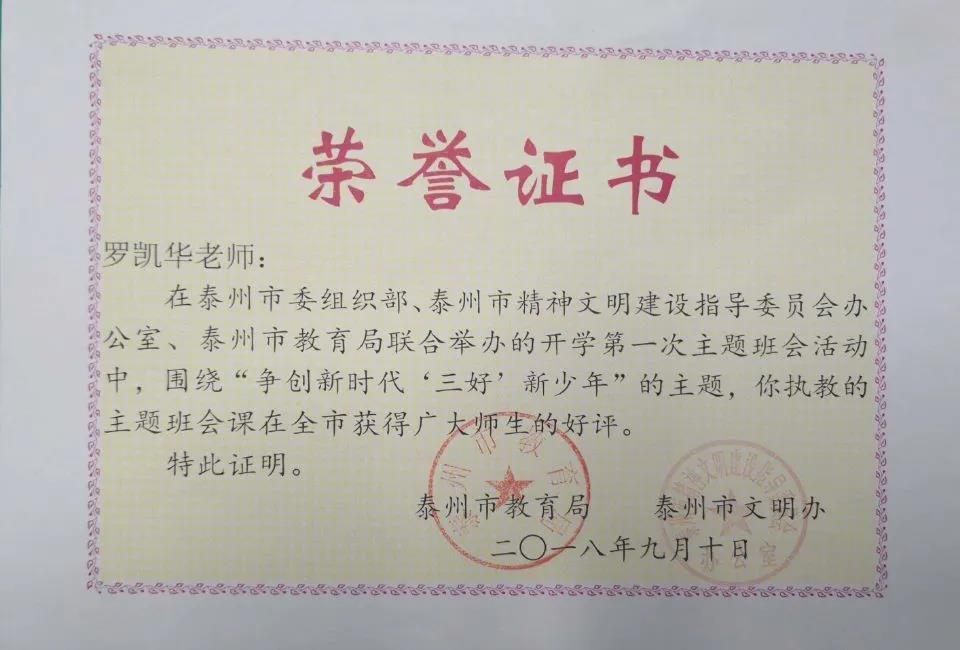 荣誉证书
罗凯华老师：
在泰州市委组织部、泰州市精神文明建设指导委员会办
公室、泰州市教育局联合举办的开学第一次主题班会活动
中，围绕“争创新时代‘三好’新少年”的主题，你执教的
主题班会课在全市获得广大师生的好评。
特此证明。
泰州市教育局 泰州市文明办
二〇一八年九月十日
泰州市教育局